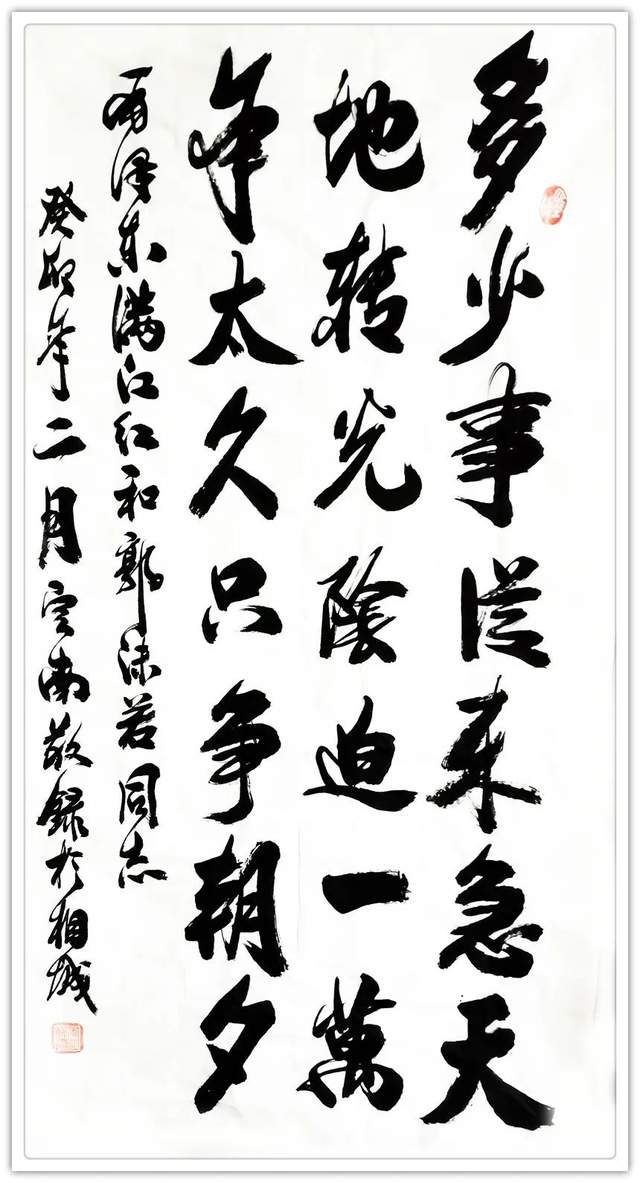 多少事從来急天
地轉光陰迫一萬
年太久只争朝夕
毛澤東滿江红和郭沫若同志
癸卯年二月雲南敬錄於相城